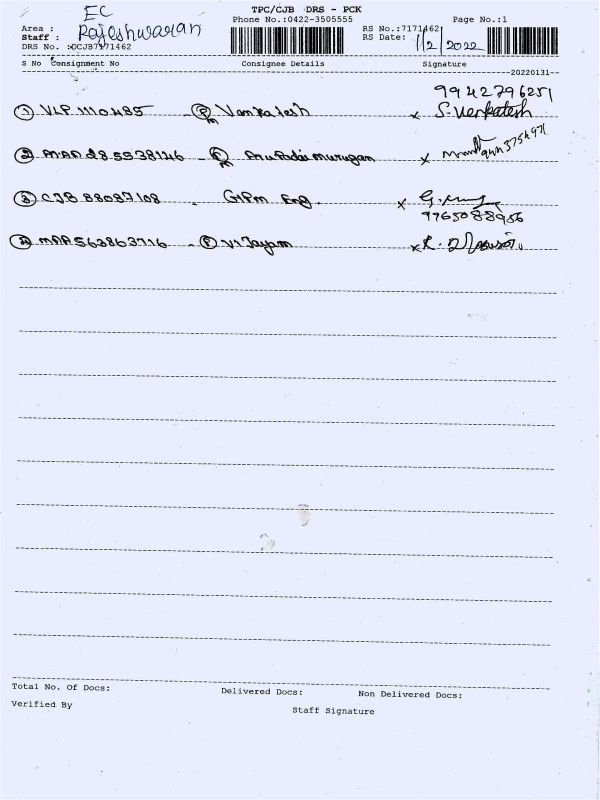 TPC/CJB DRS - PCK
EC
Phone No.:0422-3505555 Page No.:1
Area : RS No.:7171462
Staff : Rajeshwaran RS Date: 1/2/2022
DRS No. :DCJB7171462
S No Consignment No Consignee Details Signature
20220131
9942796251
① VLP 1110485 - Ⓟ Venkatesh x S. Venkatesh
② 285538146 - x
③ CJB 88087108 - GPM Eng. x G.
9765088956
④ MAA563863716 - Ⓟ Vijayam x R.
Total No. Of Docs: Delivered Docs: Non Delivered Docs:
Verified By Staff Signature